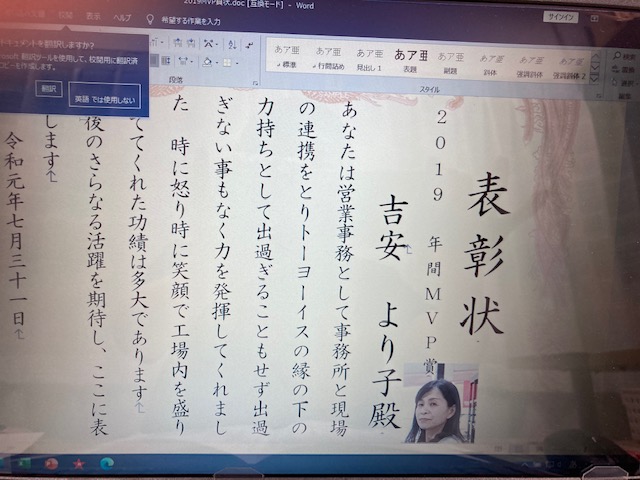 2019MVP賞状.doc [互換モード] - Word
サインイン
校閲 表示 ヘルプ 希望する作業を入力
ドキュメントを翻訳しますか?
翻訳ツールを使用して、校閲用に翻訳済
コピーを作成します。
翻訳
英語 では使用しない
段落
あア亜 あア亜 あア亜 あア亜 あア亜 あア亜 あア亜 あア亜
標準 行間詰め 見出し 1 表題 副題 斜体 強調斜体 強調斜体 2
スタイル
検索
置換
選択
編集
表彰状
2019 年間MVP賞
吉安 より子殿
あなたは営業事務として事務所と現場
の連携をとりトーヨーイスの縁の下の
力持ちとして出過ぎることもせず出過
ぎない事もなく力を発揮してくれまし
た 時に怒り時に笑顔で工場内を盛り
ててくれた功績は多大であります
後のさらなる活躍を期待し、ここに表
します
令和元年七月三十一日